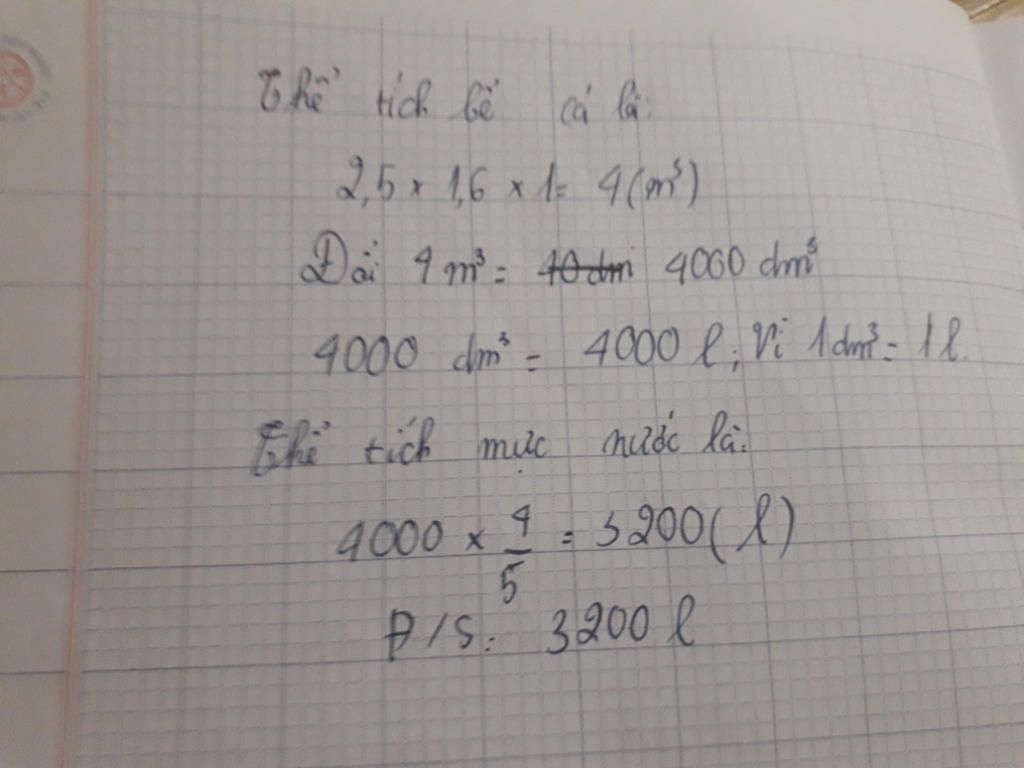 Thể tích bể cá là:
2,5 × 1,6 × 1 = 4 (m³)
Đổi 4 m³ = 40 dm 4000 dm³
4000 dm³ = 4000 l; Vì 1 dm³ = 1 l.
Thể tích mực nước là:
4000 × 4/5 = 3200 ( l )
Đ/S: 3200 l